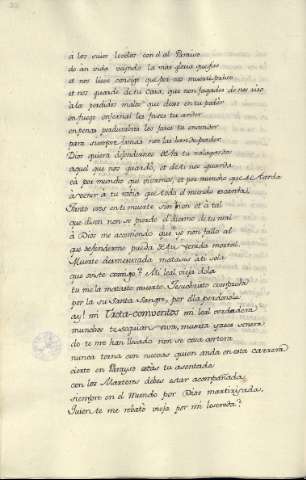 a los suios levólos con él al Paraiso
do an vida veiendo la más gloria que quiso
él nos lieve consigo que por nos muerte priso
él nos guarde de tu casa, que non fagades de nos riso
a los perdidos malos que dexas en tu poder
en fuego infernal los faces tu arder
en penas perdurables les faces tu encender
para siempre jamás non los han de perder
Dios quiera defendernos de la tu zalagarda
aquel que nos guardó, et de ti nos guarda
cá por mucho que vivamos, et por mucho que se tarda
a venir á tu rabia que todo el mundo escarda,
Tanto eres en ti muerte sin bien et á tal
que dicen non se puede el diezmo de tu mal
á Dios me acomiendo que yo non fallo al
que defenderme pueda de tu venida mortal.
Muerte desmesurada matases á ti sola
que oviste conmigo? Mi leal vieja dola
tu me la mataste muerte. Jesuchristo compróla
por la su santa sangre, por ella perdonóla
ay! mi Trota-conventos mi leal verdadera
munchos te seguían viva, muerta yaces señera
do te me han llevado non se cosa certera
nunca torna con nuevas quien anda en esta carrera
cierto en Parayso estás tu asentada
con los Martires debes estar acompañada,
siempre en el mundo por Dios martirizada,
Quien te me rebató vieja por mi lacerada?